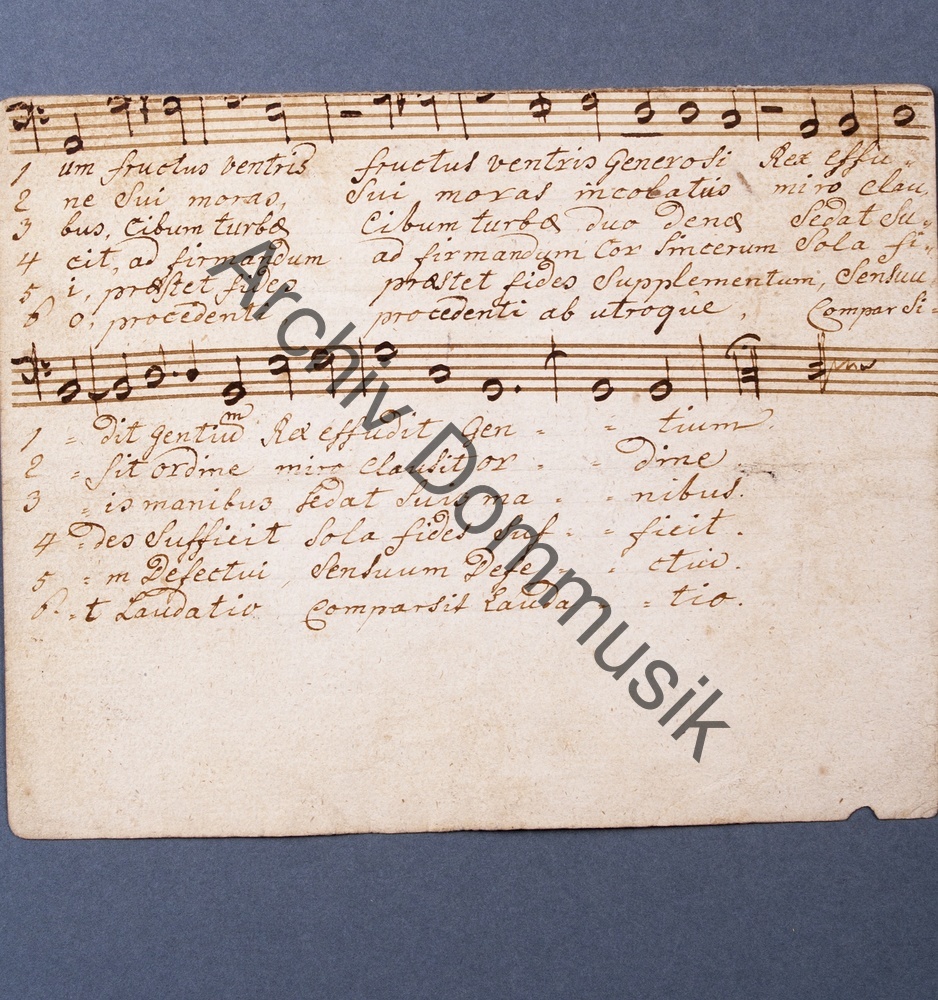 1 um fructus ventris fructus ventris Generosi Rex effu -
2 ne Sui moras, Sui moras incolatus miro clau,
3 bus, Cibum turbæ Cibum turbæ duo denæ Sedat Su -
4 cit, ad firmandum ad firmandum Cor Sincerum Sola fi -
5 i, præstet fides præstet fides Supplementum, Sensuu
6 o, procedenti procedenti ab utroque, Compar Si -
1 - dit gentiūm Rex effudit Gen - - tium.
2 - Sit ordine miro clausit or - - dine
3 - is manibus Sedat Suis ma - - nibus.
4 - des Sufficit Sola fides Suf - - ficit.
5 - m Defectui, Sensuum Defe - - ctui.
6 - t Laudatio Comparsit Lauda - - tio.
Archiv Dommusik